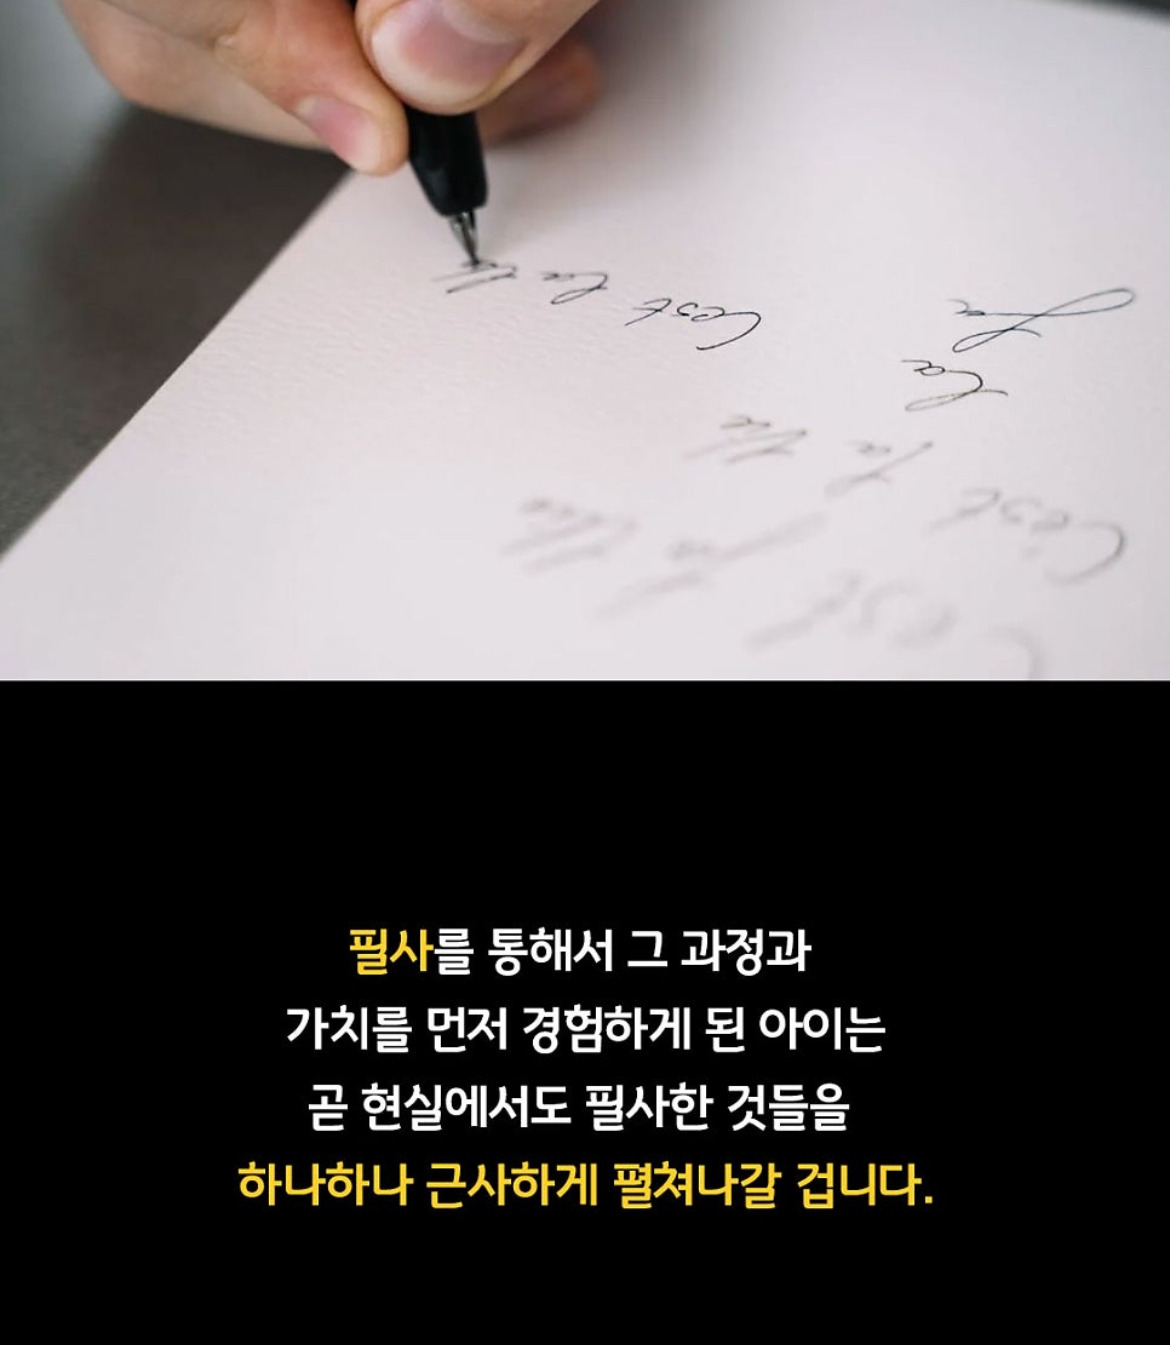 C'est la vie
C'est la vie
La
La
C'est la
필사를 통해서 그 과정과
가치를 먼저 경험하게 된 아이는
곧 현실에서도 필사한 것들을
하나하나 근사하게 펼쳐나갈 겁니다.